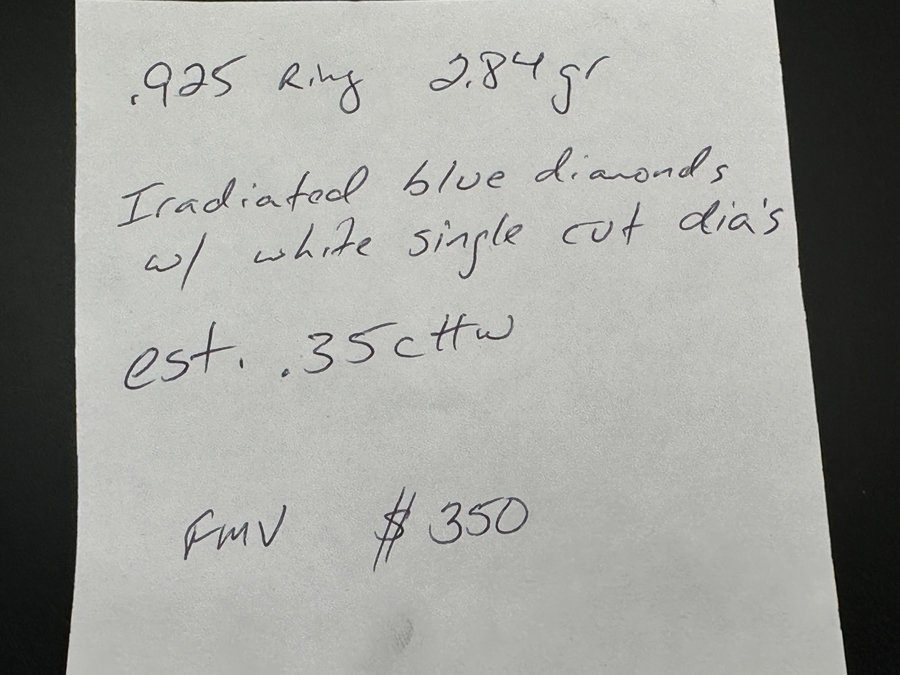 .925 Ring 2.84 gr
Iradiated blue diamonds
w/ white single cut dia's
est. .35 cttw
FMV $350